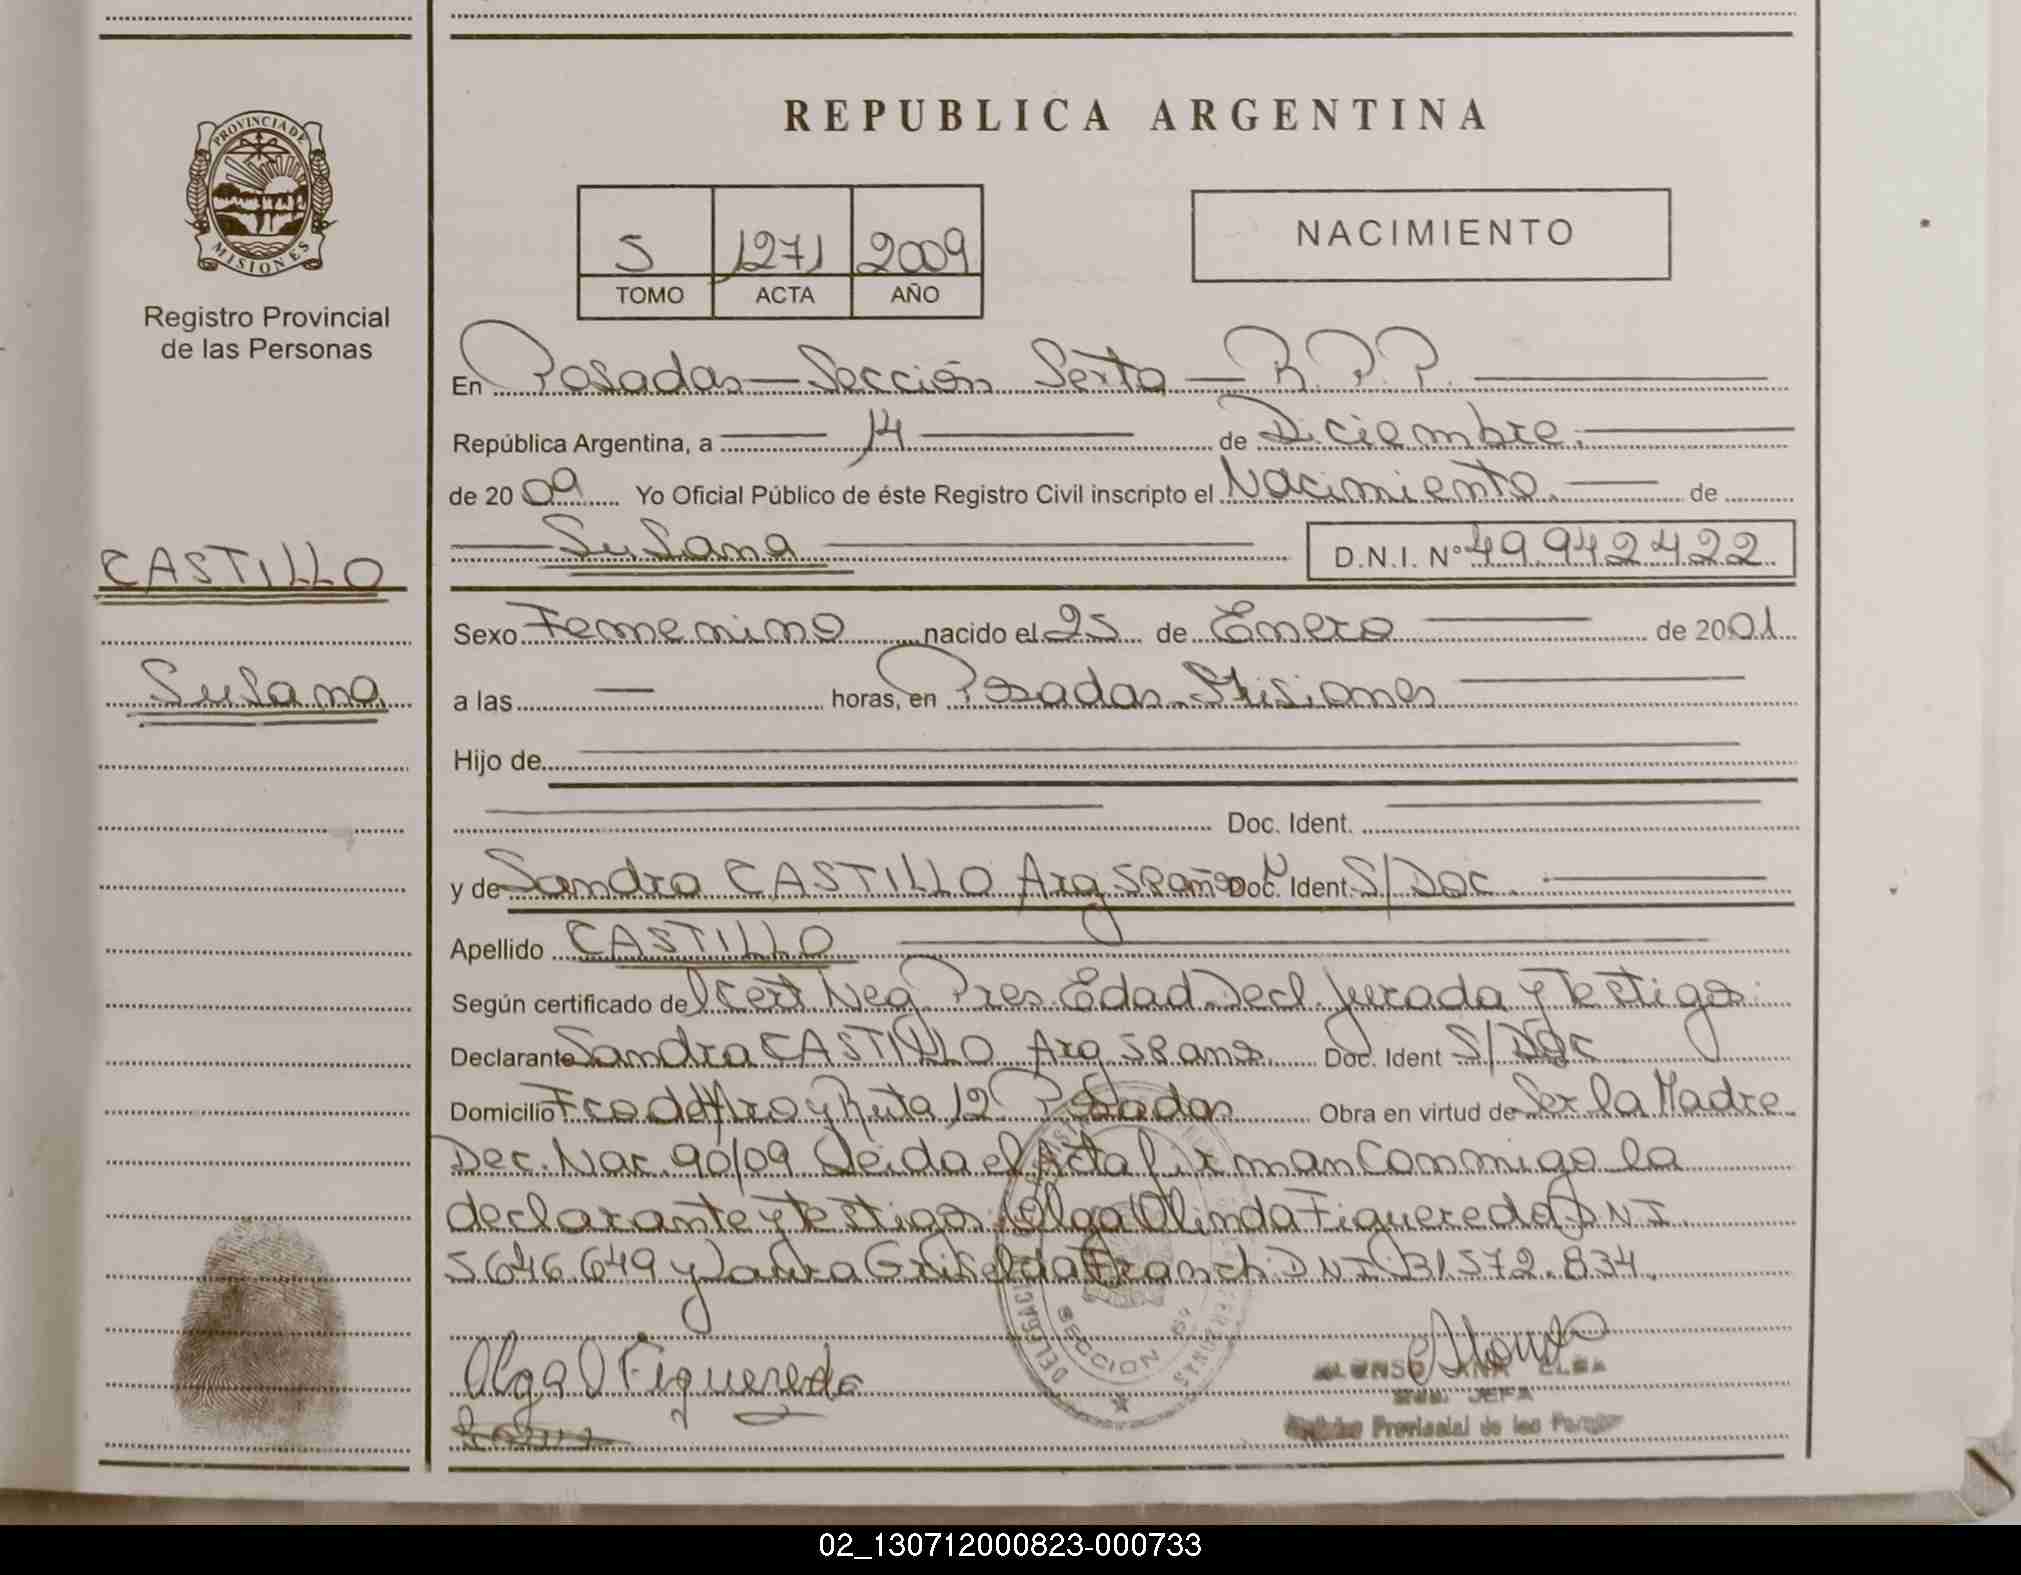 REPUBLICA ARGENTINA
PROVINCIA DE
MISIONES
Registro Provincial
de las Personas
5 1271 2009
TOMO ACTA AÑO
NACIMIENTO
En Posadas — Sección Sexta — R.P.P.
República Argentina, a — 14 — de Diciembre.
de 2009 Yo Oficial Público de éste Registro Civil inscripto el Nacimiento. — de
— Susana — D.N.I. Nº 49.942422
CASTILLO
Susana
Sexo Femenino nacido el 25 de Enero — de 2001
a las — horas, en Posadas - Misiones
Hijo de
Doc. Ident.
y de Sandra CASTILLO Arg 58 años Doc. Ident. S/Doc.
Apellido CASTILLO
Según certificado de Cert Neg Pres. Edad. Decl. Jurada y Testigos.
Declarante Sandra CASTILLO Arg 58 años Doc. Ident S/Doc
Domicilio y Ruta 12 Posadas Obra en virtud de Ser la Madre
Dec. Nac. 90/09 Leida el Acta firman conmigo la
declarante y testigos: Olga Olinda Figueredo DNI
5646.649 y Laura Griselda Franch DNI 31.572.834.
SECCION 6º
Olga O Figueredo
ALONSO ANA ELSA
SUB. JEFA
Provincial de las
02_130712000823-000733